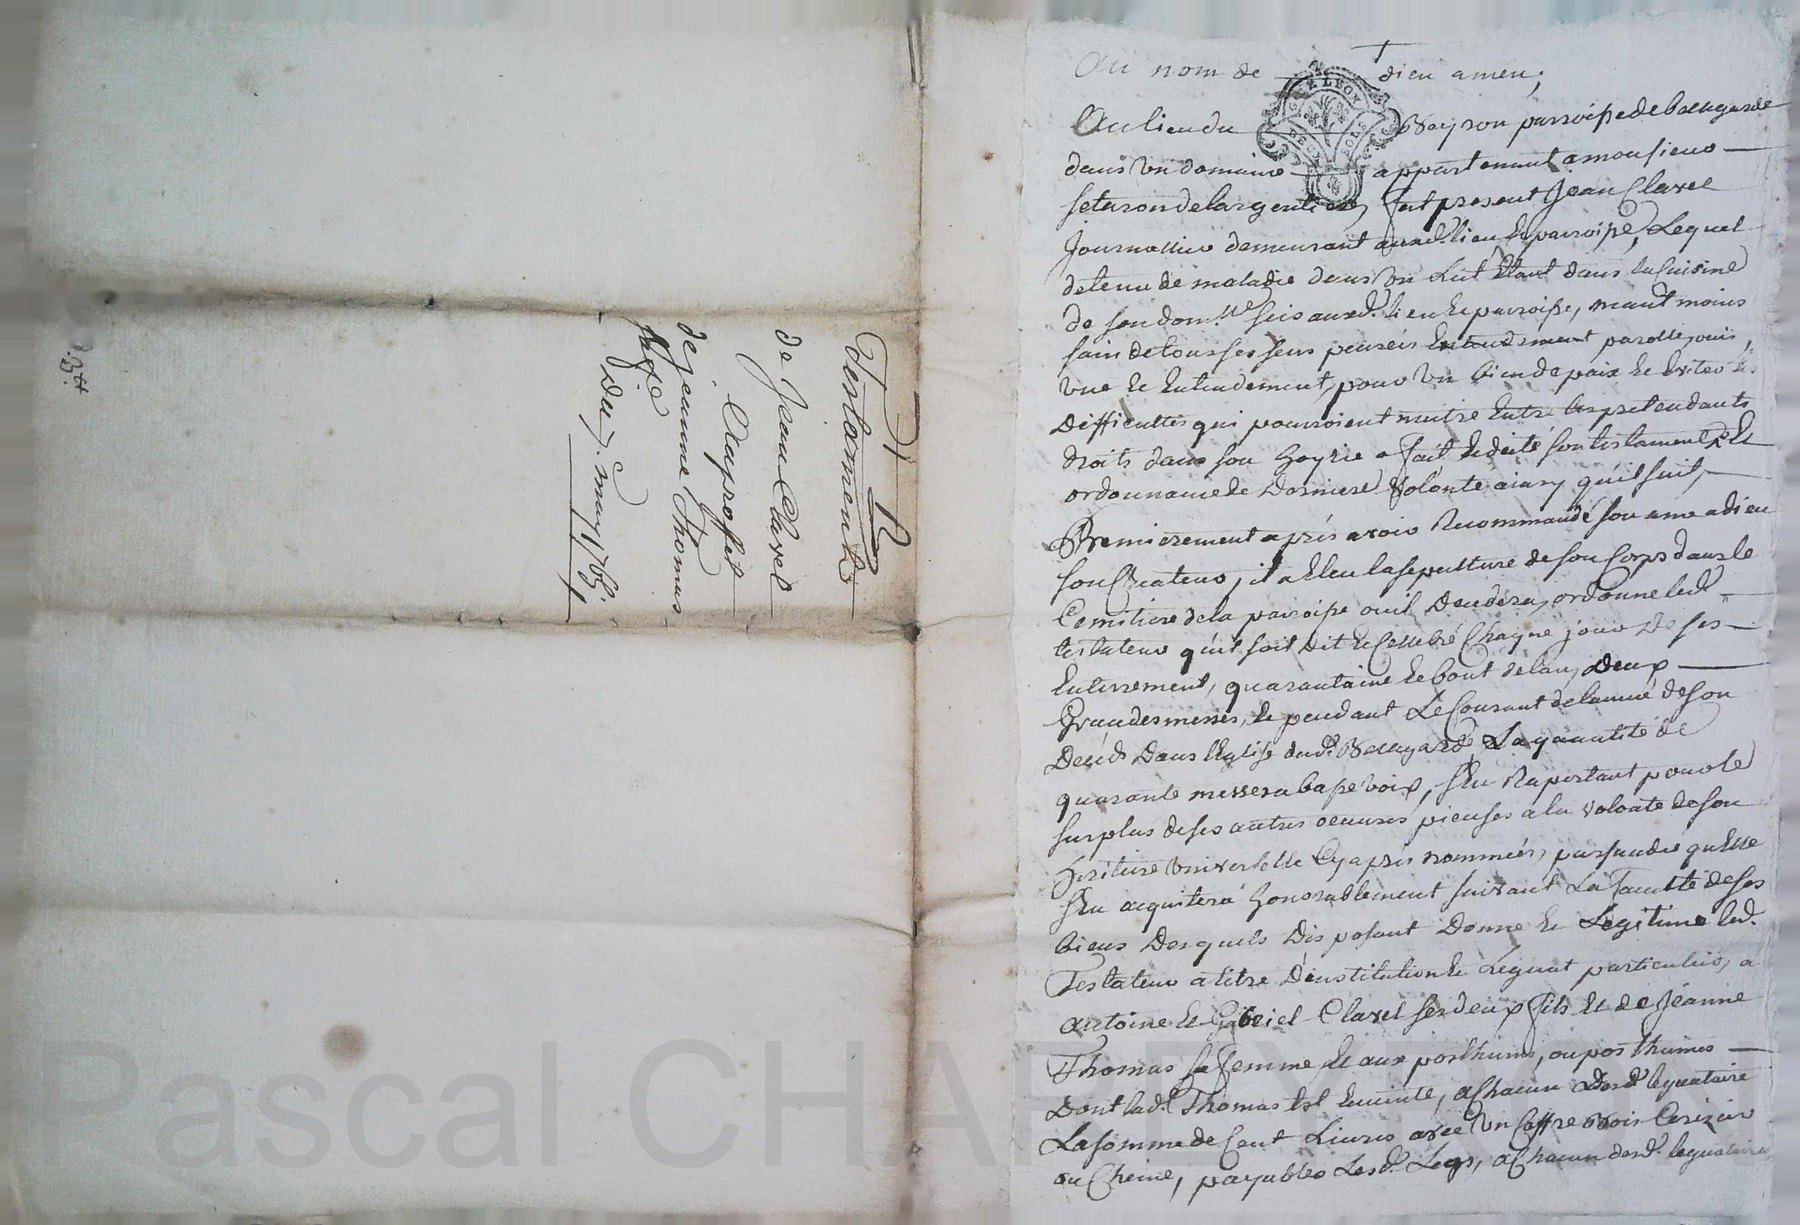 Testament
de Jean Clavel
Au profit
de jeanne Thomas
sa fe
Du 7 may 1765
Au nom de dieu amen;
Au lieu du Beyson parroisse de bellegarde
dans un domaine appartenant a monsieur
fut present Jean Clavel
Journallier demeurant aud. lieu & parroisse, Lequel
detenu de maladie dans un Lit Etant dans la Cuisine
de son dom.lle scis aud. lieu & parroisse, neant moins
sain de tous ses sens pensées Entendement parolle, ouie,
vue & Entendement, pour un bien de paix & Eviter les
Difficultes qui pourroient naitre Entre les pretendants
droits dans son hoyrie a fait & dicté son testament &
ordonnance de Derniere Volonte ainsy qu'il suit,
Premierement après avoir Recommandé son ame a dieu
son Createur, il a Eleu la sepulture de son Corps dans le
Cemitiere de la parroisse ou il Decedera, ordonne led.
testateur qu'il soit Dit & Cellebré Chaque jour De ses
Enterrement, quarantaine & bout de lan, Deux
Grandes messes, & pendant Le Courant de lannée de son
Deces Dans l'Eglise dud. Bellegarde La quantité de
quarante messes a basse voix, s'En Raportant pour le
surplus de ses autres oeuvres pieuses a la volonté de son
heritiere universelle Cy après nommée, persuadé qu'elle
s'En acquitera honorablement suivant La faculté de ses
biens Desquels Disposant Donne & Legitime led.
Testateur a titre D'institution & Legat particulier, a
antoine & Gabriel Clavel ses deux fils & de Jeanne
Thomas sa femme & aux posthume, ou posthumes
Dont lad. Thomas Est Enceinte, a Chacun Desd. legataire
La somme de Cent Livres avec un Coffre Bois Cerizier
ou Cheine, payables Lesd. Legs, a Chacun desd. legataire
Pascal CHAREYRON